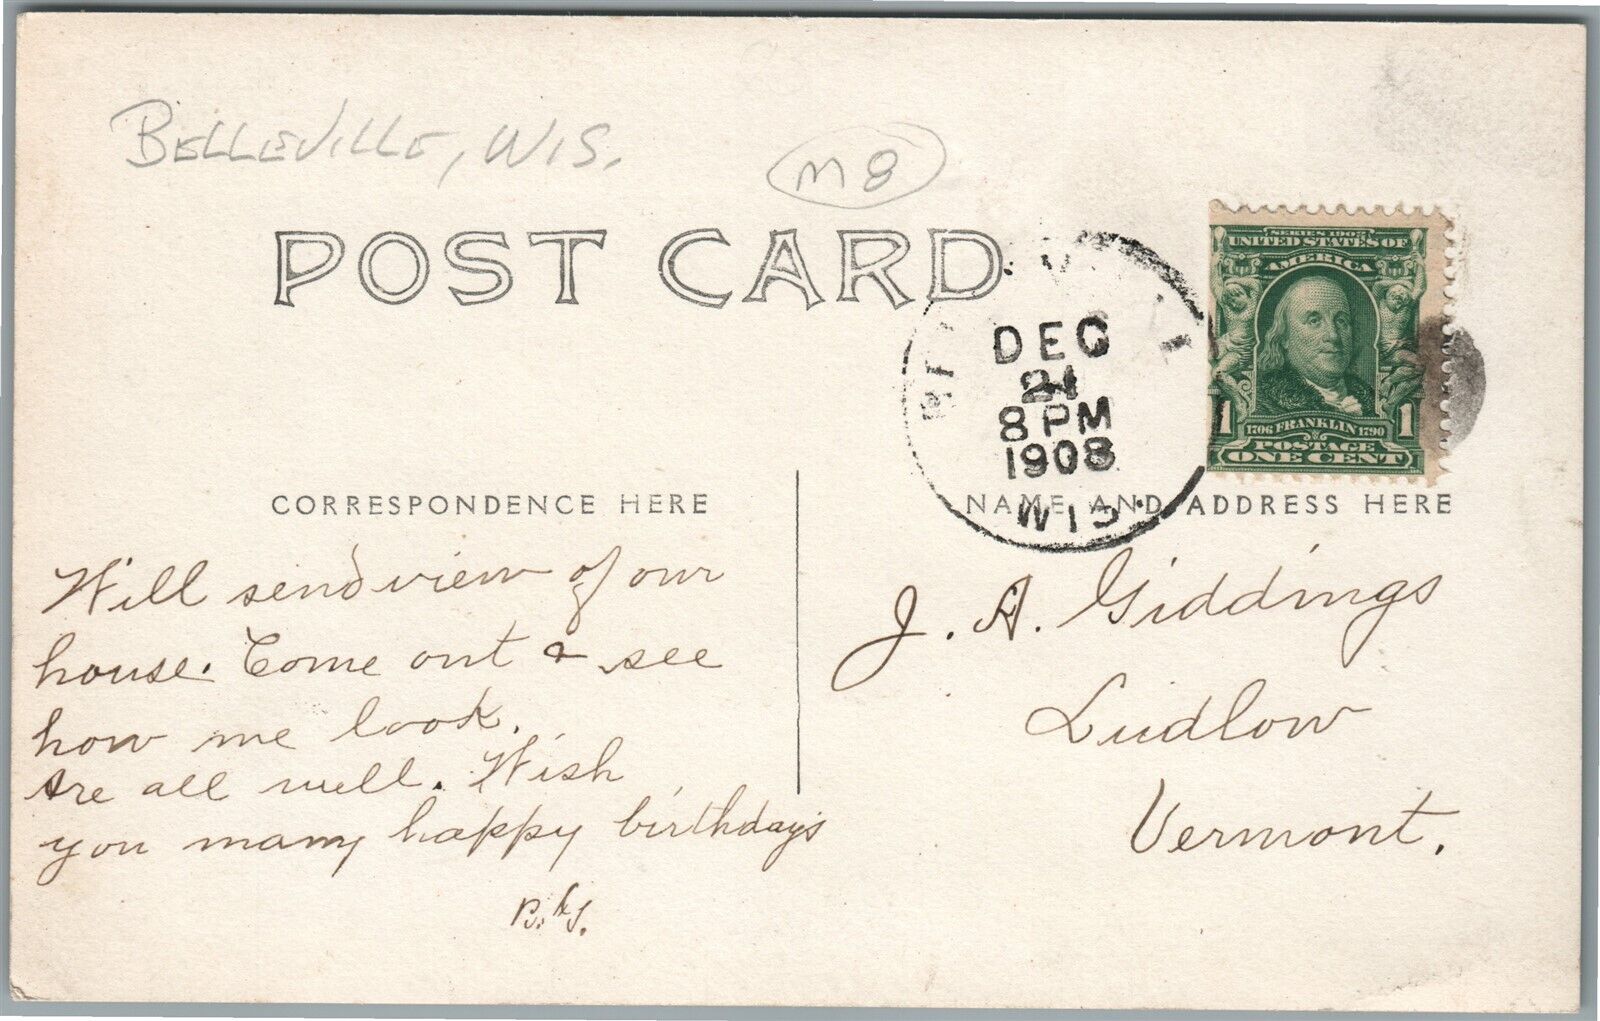 BELLEVILLE, WIS.
M 8
POST CARD
DEC
21
8 PM
1908
WIS.
SERIES 1902
UNITED STATES OF
AMERICA
1 1
1706 FRANKLIN 1790
POSTAGE
ONE CENT
CORRESPONDENCE HERE
NAME AND ADDRESS HERE
Will send view of our
house. Come out & see
how me look.
Are all well. Wish
you many happy birthdays
J. A. Giddings
Ludlow
Vermont.